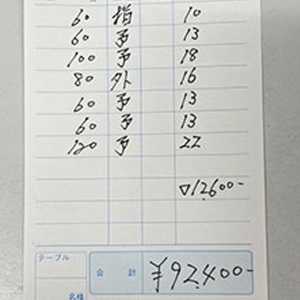 60 指 10
60 予 13
100 予 18
80 外 16
60 予 13
60 予 13
120 予 22
▽12,600-
テーブル
合計 ¥92,400-
名様